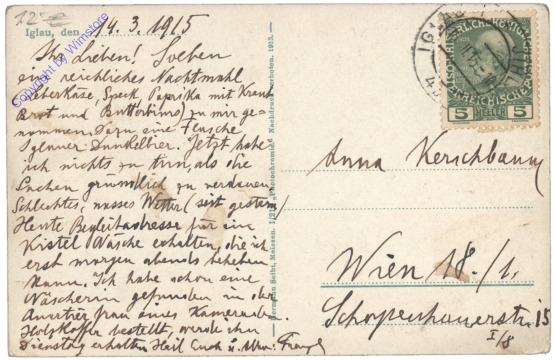 12.-
Iglau, den 14.3.1915
Ihr Lieben! Soeben
ein reichliches Nachtmahl
Leberkäse, Speck, Paprika mit Kraut
Brot und Butterbirns zu mir ge-
nommen. Dazu eine Flasche
Iglauer Dunkelbier. Jetzt habe
ich nichts zu tun, als die
Sachen gründlich zu verdauen.
Schlechtes, nasses Wetter (seit gestern)
Heute Begleitadresse für ein
Kistel Wäsche erhalten, die ich
erst morgen abends beheben
kann. Ich habe schon eine
Wäscherin gefunden in der
Frau eines Kameraden.
Holzkoffer bestellt, werde ihn
Dienstag erhalten Heil Euch u.
Copyright by Wimstore
Hermann Seibt, Meissen. 1915 "Photochromie" Nachdruck verboten. 1915.
IGLAU
5 HELLER 5
Anna Kerschbaum
Wien 18./1.
Schopenhauerstr. 15
I/8